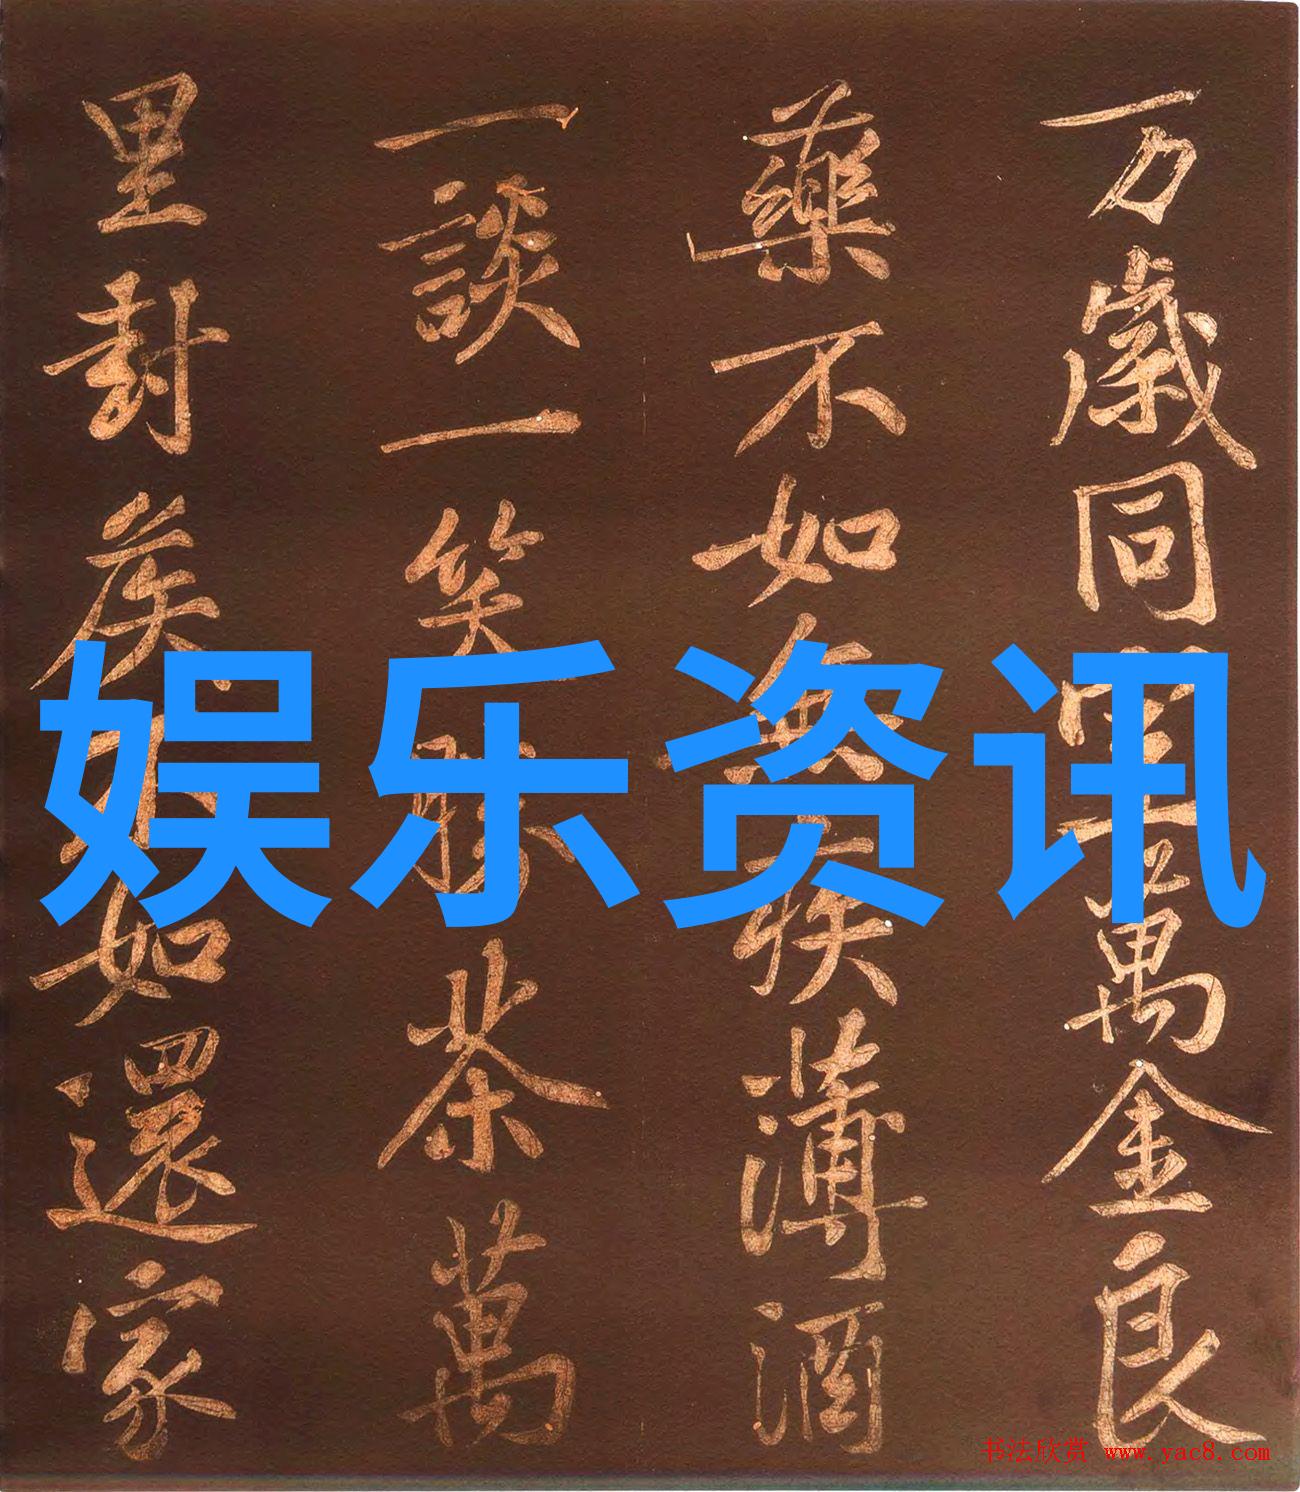 万歲同萬金良
藥不如無疾薄酒
一談一笑勝茶萬
里封侯不如還家
娱乐资讯
书法欣赏 www.yac8.com